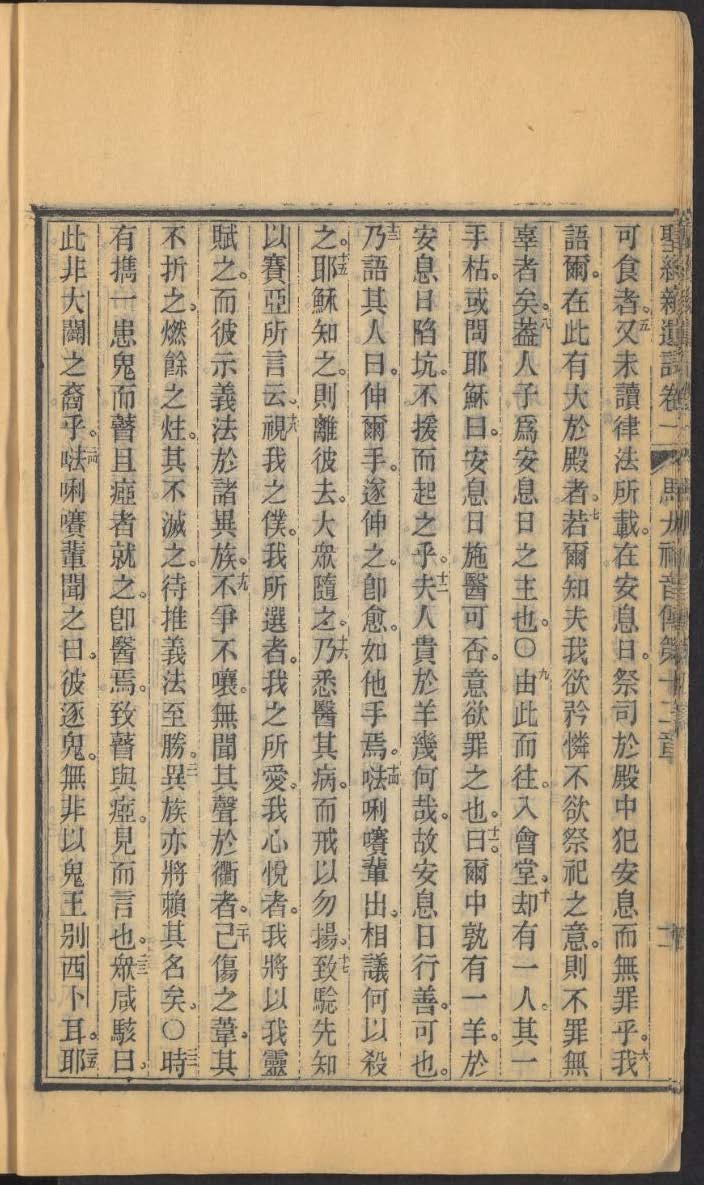 聖經新遺詔卷一 馬太福音傳第十二章 二
可食者。五又未讀律法所載。在安息日。祭司於殿中犯安息而無罪乎。六我
語爾。在此有大於殿者。七若爾知夫我欲矜憐不欲祭祀之意。則不罪無
辜者矣。八蓋人子爲安息日之主也。〇九由此而往。入會堂。十却有一人。其一
手枯。或問耶穌曰。安息日施醫可否。意欲罪之也。十一曰。爾中孰有一羊。於
安息日陷坑。不援而起之乎。十二夫人貴於羊幾何哉。故安息日行善。可也。
十三乃語其人曰。伸爾手。遂伸之。卽愈。如他手焉。十四㗓唎㘔輩出。相議何以殺
之。十五耶穌知之。則離彼去。大衆隨之。十六乃悉醫其病。而戒以勿揚。十七致騐先知
以賽亞所言云。十八視我之僕。我所選者。我之所愛。我心悅者。我將以我靈
賦之。而彼示義法於諸異族。十九不爭不嚷。無聞其聲於衢者。二十已傷之葦。其
不折之。燃餘之炷。其不滅之。待推義法至勝。二一異族亦將賴其名矣。〇二二時
有攜一患鬼而瞽且瘂者就之。卽醫焉。致瞽與瘂。見而言也。二三衆咸駭曰。
此非大闢之裔乎。二四㗓唎㘔輩聞之曰。彼逐鬼。無非以鬼王别西卜耳。二五耶